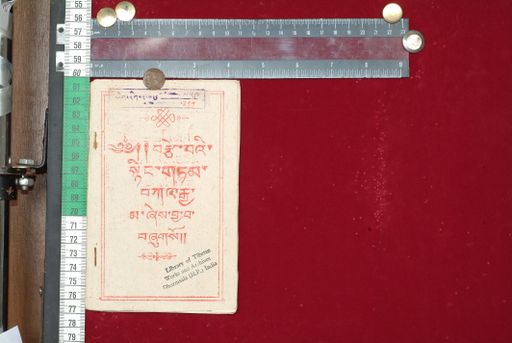 ༄༅།། བརྩེ་བའི་
སྙིང་གཏམ་
བཀའ་རྒྱ་
མ་ཞེས་བྱ་བ་
བཞུགས་སོ།།
Library of Tibetan
Works and Archives
Dharamsala (H.P.) India
55
56
57
58
59
60
61
62
63
64
65
66
67
68
69
70
71
72
73
74
75
76
77
78
79